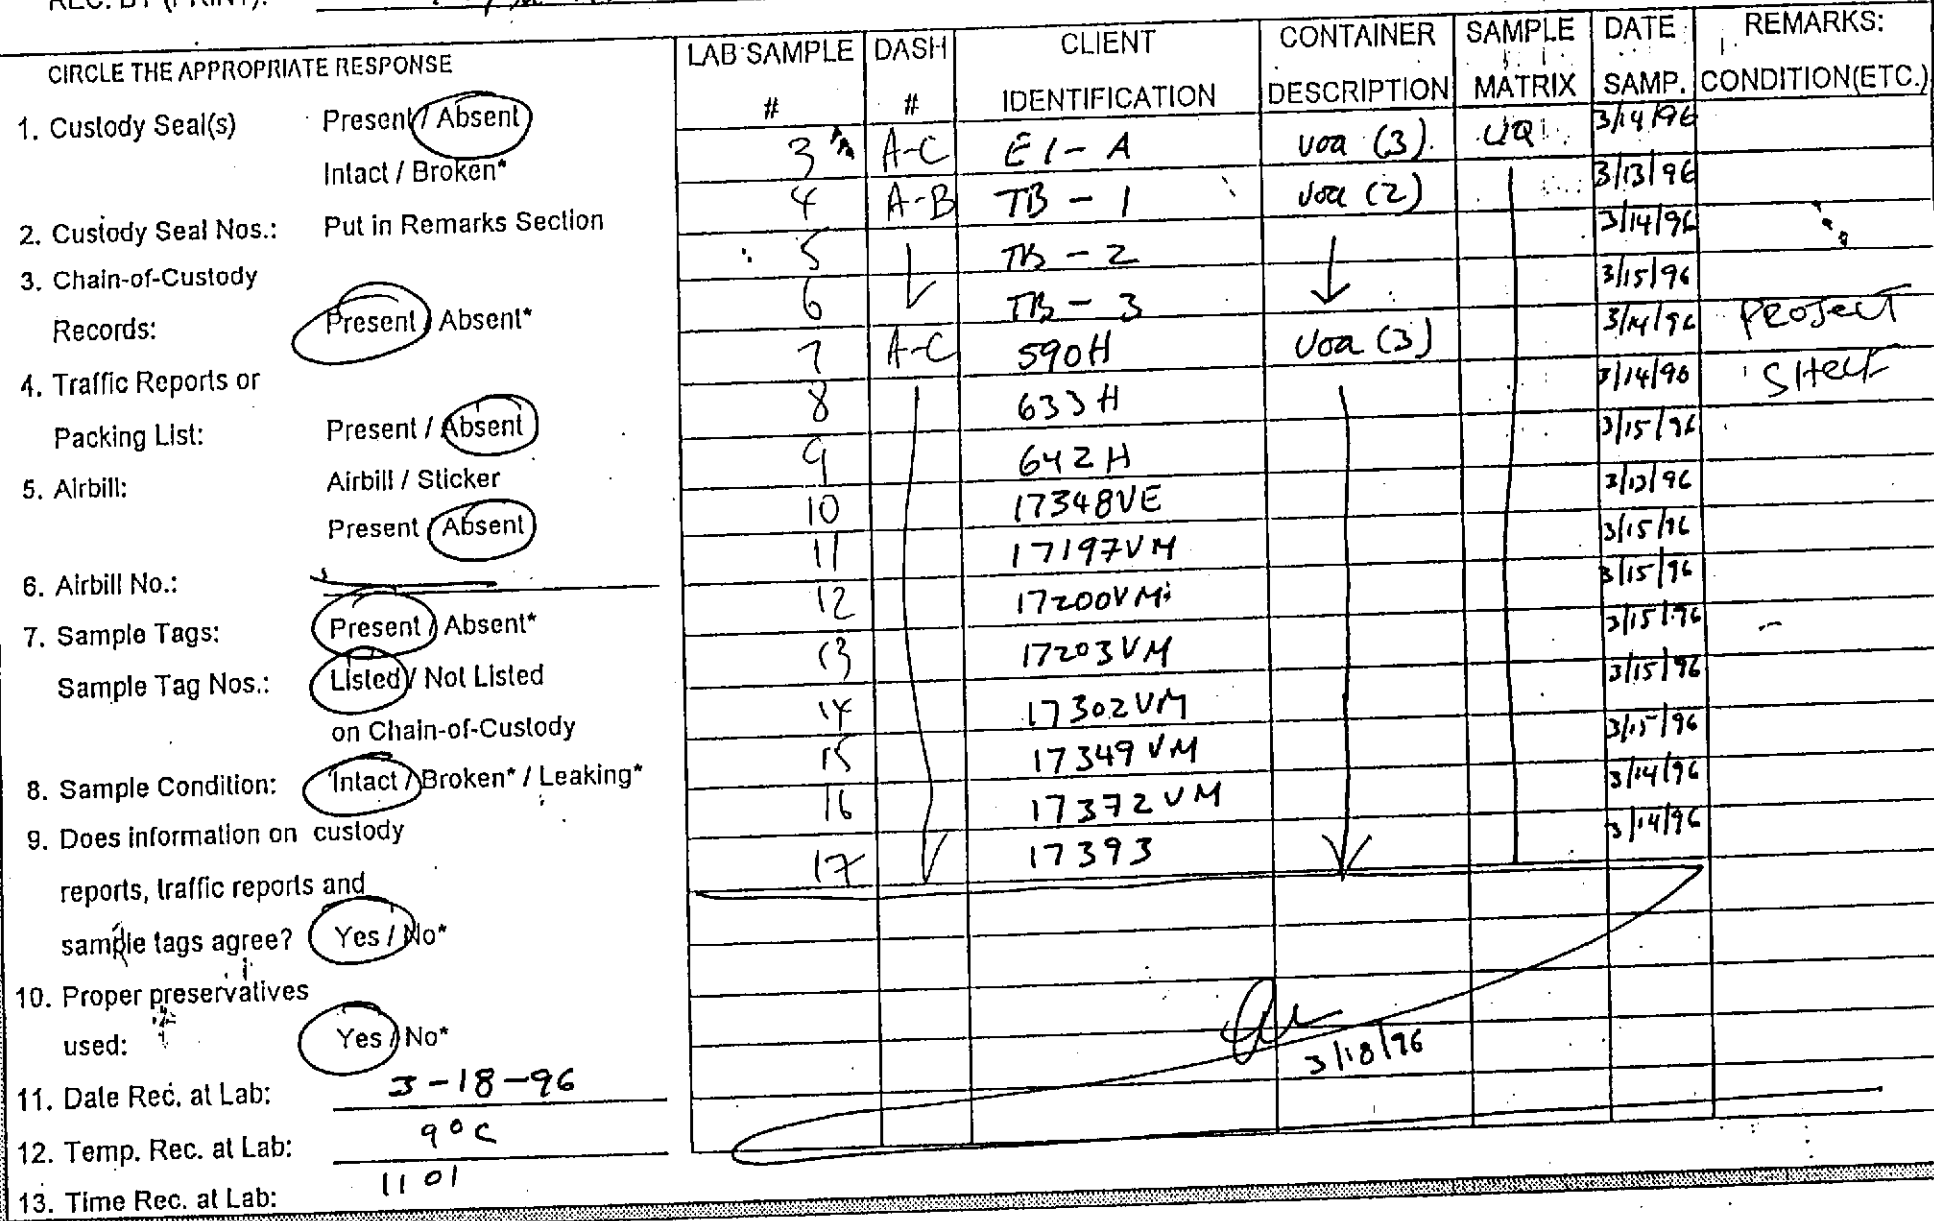 REC. BY (PRINT):
CIRCLE THE APPROPRIATE RESPONSE
1. Custody Seal(s) Present / Absent
Intact / Broken*
2. Custody Seal Nos.: Put in Remarks Section
3. Chain-of-Custody
Records: Present / Absent*
4. Traffic Reports or
Packing List: Present / Absent
5. Airbill: Airbill / Sticker
Present / Absent
6. Airbill No.:
7. Sample Tags: Present / Absent*
Sample Tag Nos.: Listed / Not Listed
on Chain-of-Custody
8. Sample Condition: Intact / Broken* / Leaking*
9. Does information on custody
reports, traffic reports and
sample tags agree? Yes / No*
10. Proper preservatives
used: Yes / No*
11. Date Rec. at Lab: 3-18-96
12. Temp. Rec. at Lab: 9°C
13. Time Rec. at Lab: 1101
LAB SAMPLE # DASH # CLIENT IDENTIFICATION CONTAINER DESCRIPTION SAMPLE MATRIX DATE SAMP. REMARKS: CONDITION(ETC.)
3 A-C E1-A voa (3) 3/14/96
4 A-B TB-1 voa (2) 3/13/96
5 TB-2 3/14/96
6 TB-3 3/15/96
7 A-C 590H voa (3) 3/14/96 PROJECT
8 633H 3/14/96
9 642H 3/15/96
10 17348VE
11 17197VM 3/15/96
12 17200VM 3/15/96
13 17203VM 3/15/96
14 17302VM 3/15/96
15 17349VM 3/15/96
16 17372VM 3/14/96
17 17393 3/14/96
3/18/96